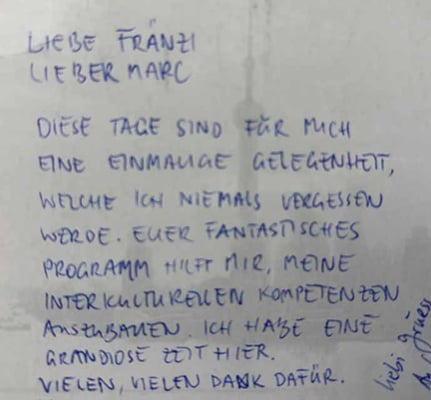 LIEBE FRÄNZI
LIEBER MARC
DIESE TAGE SIND FÜR MICH
EINE EINMALIGE GELEGENHEIT,
WELCHE ICH NIEMALS VERGESSEN
WERDE. EUER FANTASTISCHES
PROGRAMM HILFT MIR, MEINE
INTERKULTURELLEN KOMPETENZEN
AUSZUBAUEN. ICH HABE EINE
GRANDIOSE ZEIT HIER.
VIELEN, VIELEN DANK DAFÜR.
liebi grüess